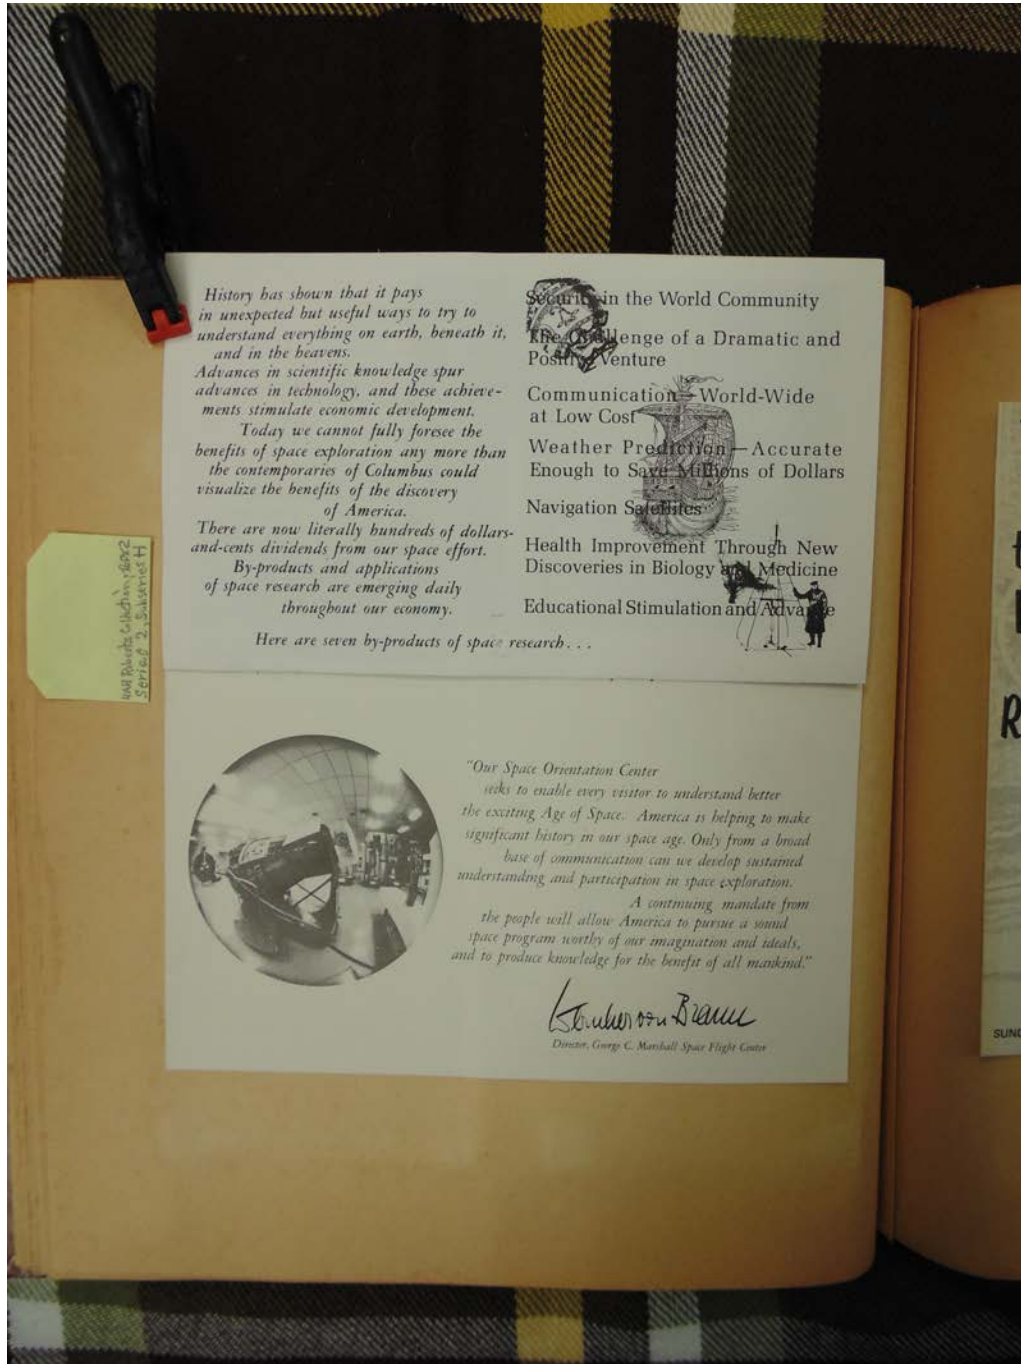 History has shown that it pays
in unexpected but useful ways to try to
understand everything on earth, beneath it,
and in the heavens.
Advances in scientific knowledge spur
advances in technology, and these achieve-
ments stimulate economic development.
Today we cannot fully foresee the
benefits of space exploration any more than
the contemporaries of Columbus could
visualize the benefits of the discovery
of America.
There are now literally hundreds of dollars-
and-cents dividends from our space effort.
By-products and applications
of space research are emerging daily
throughout our economy.
Here are seven by-products of space research...
Security in the World Community
The Challenge of a Dramatic and
Positive Venture
Communication—World-Wide
at Low Cost
Weather Prediction—Accurate
Enough to Save Millions of Dollars
Navigation Satellites
Health Improvement Through New
Discoveries in Biology and Medicine
Educational Stimulation and Advance
UAH Roberts Collection,
Series 2, Subseries H
"Our Space Orientation Center
seeks to enable every visitor to understand better
the exciting Age of Space. America is helping to make
significant history in our space age. Only from a broad
base of communication can we develop sustained
understanding and participation in space exploration.
A continuing mandate from
the people will allow America to pursue a sound
space program worthy of our imagination and ideals,
and to produce knowledge for the benefit of all mankind."
Wernher von Braun
Director, George C. Marshall Space Flight Center
R
SUN